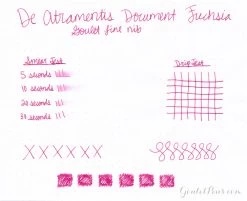 De Atramentis Document Fuchsia
Gould fine nib
Smear Test
Drip Test
5 seconds
10 seconds
20 seconds
30 seconds
XXXXXX